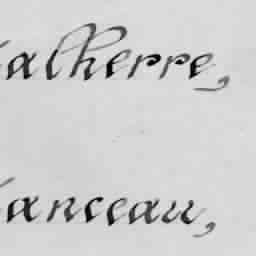 alherre,
anceau,